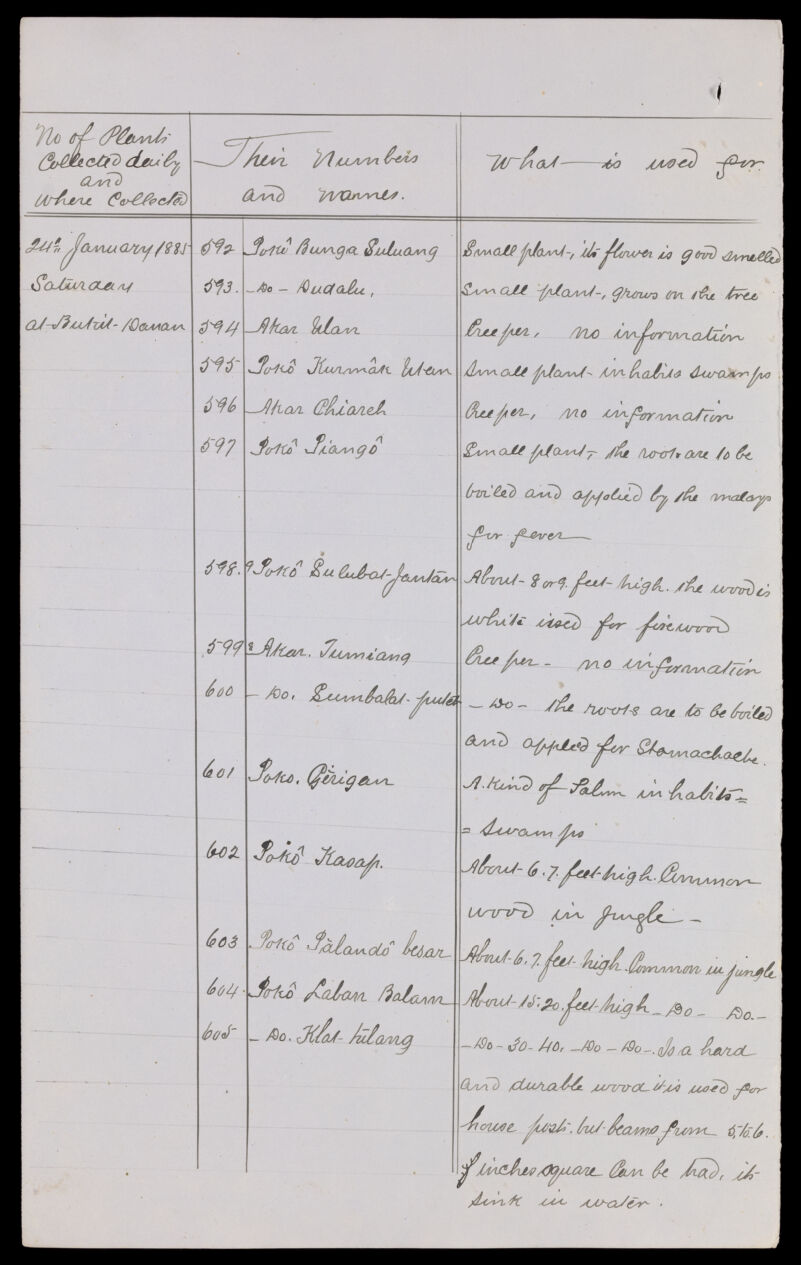 No of Plants
Collected daily
and
where Collected
Their Numbers
and Names.
What is used for
24th January 1885
Saturday
at Bukit Danan
592 Pokô Bunga Suluang Small plant, its flower is good smelled
593. -Do- Dudalu, Small plant, grows on the tree
594 Akar Ulan Creeper, no information
595 Pokô Kurmâk Utan Small plant inhabits swamps
596 Akar Chiareh Creeper, no information
597 Pokô Piangô Small plant, the roots are to be
boiled and applied by the malays
for fever
598. Pokô Sulubat Jantan About 8 or 9 feet high. the wood is
white used for firewood
599 Akar. Tumiang Creeper - no information
600 - Do. Sumbalat putet - Do - the roots are to be boiled
and applied for Stomachache.
601 Poko. Gĕrigan A Kind of Palm inhabits =
= swamps
602 Pokô Kasap. About 6.7. feet high. Common
wood in jungle -
603 Pokô Pàlandô besar About 6.7. feet high. Common in jungle
604. Pokô Laban Balam About 15.20. feet high - Do - Do. -
605 - Do. Klat tulang - Do - 30 - 40. - Do - Do -. Is a hard
and durable wood it is used for
house posts. but beams from 5 to 6.
inches square Can be had, its
sink in water.